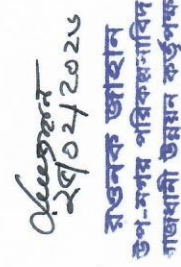 ২৫/০২/২০২৬
রওনক জাহান
উপ-নগর পরিকল্পনাবিদ
রাজধানী উন্নয়ন কর্তৃপক্ষ